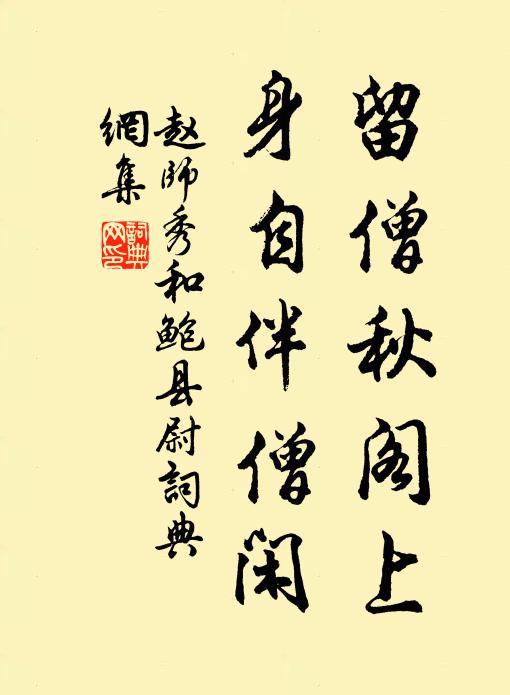 留僧秋阁上
身自伴僧闲
赵师秀和鲍县尉詞典
網集
詞典
网印